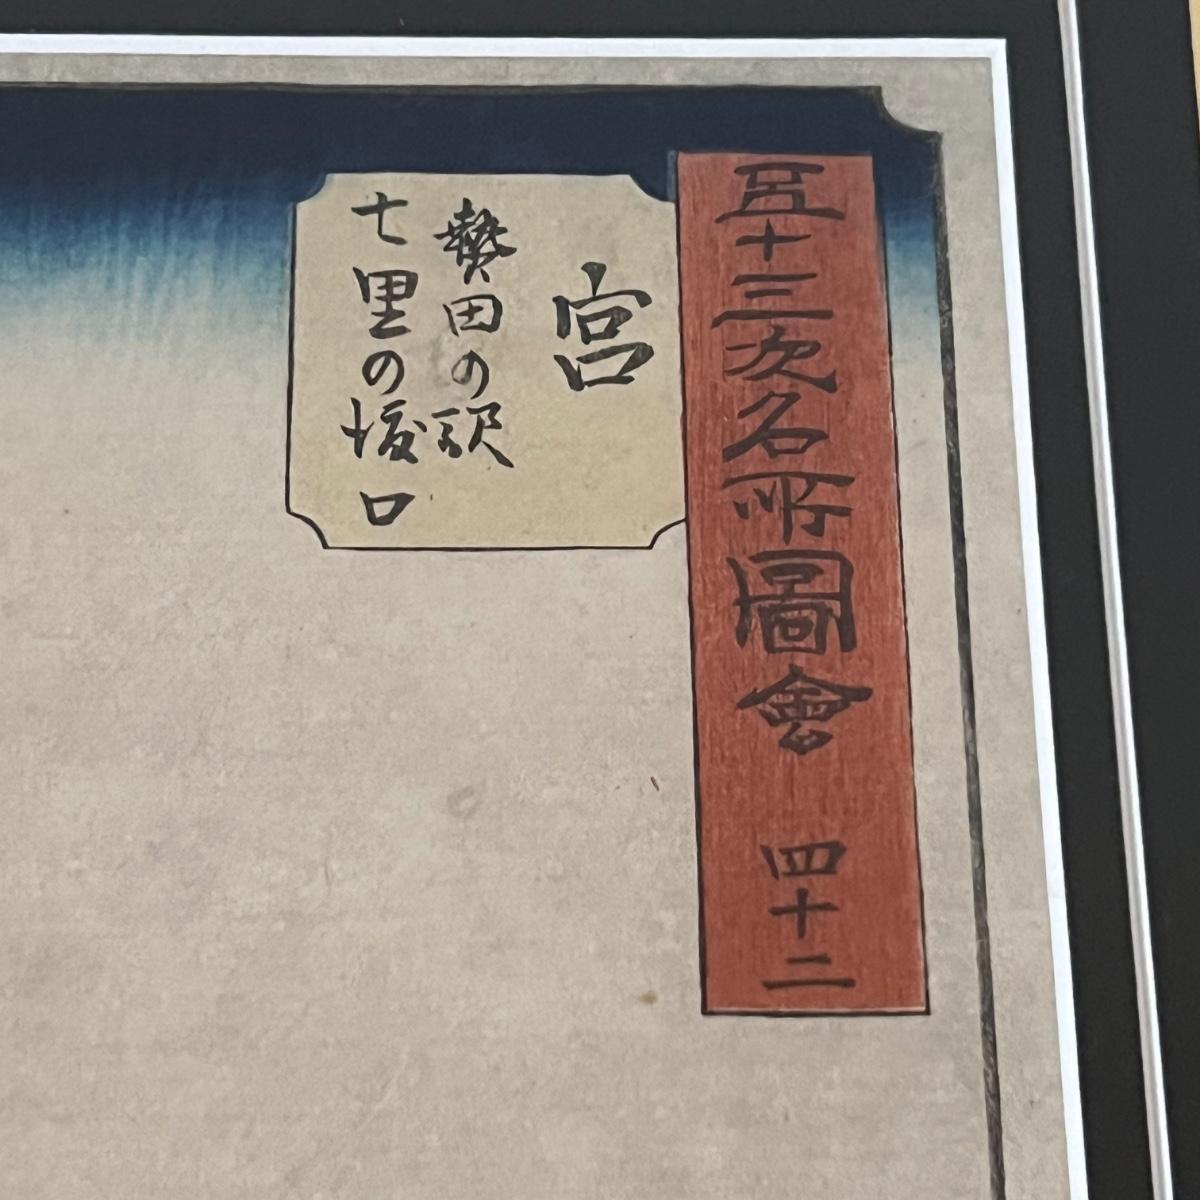 五十三次名所圖會 四十二
宮
熱田の駅
七里の渡口